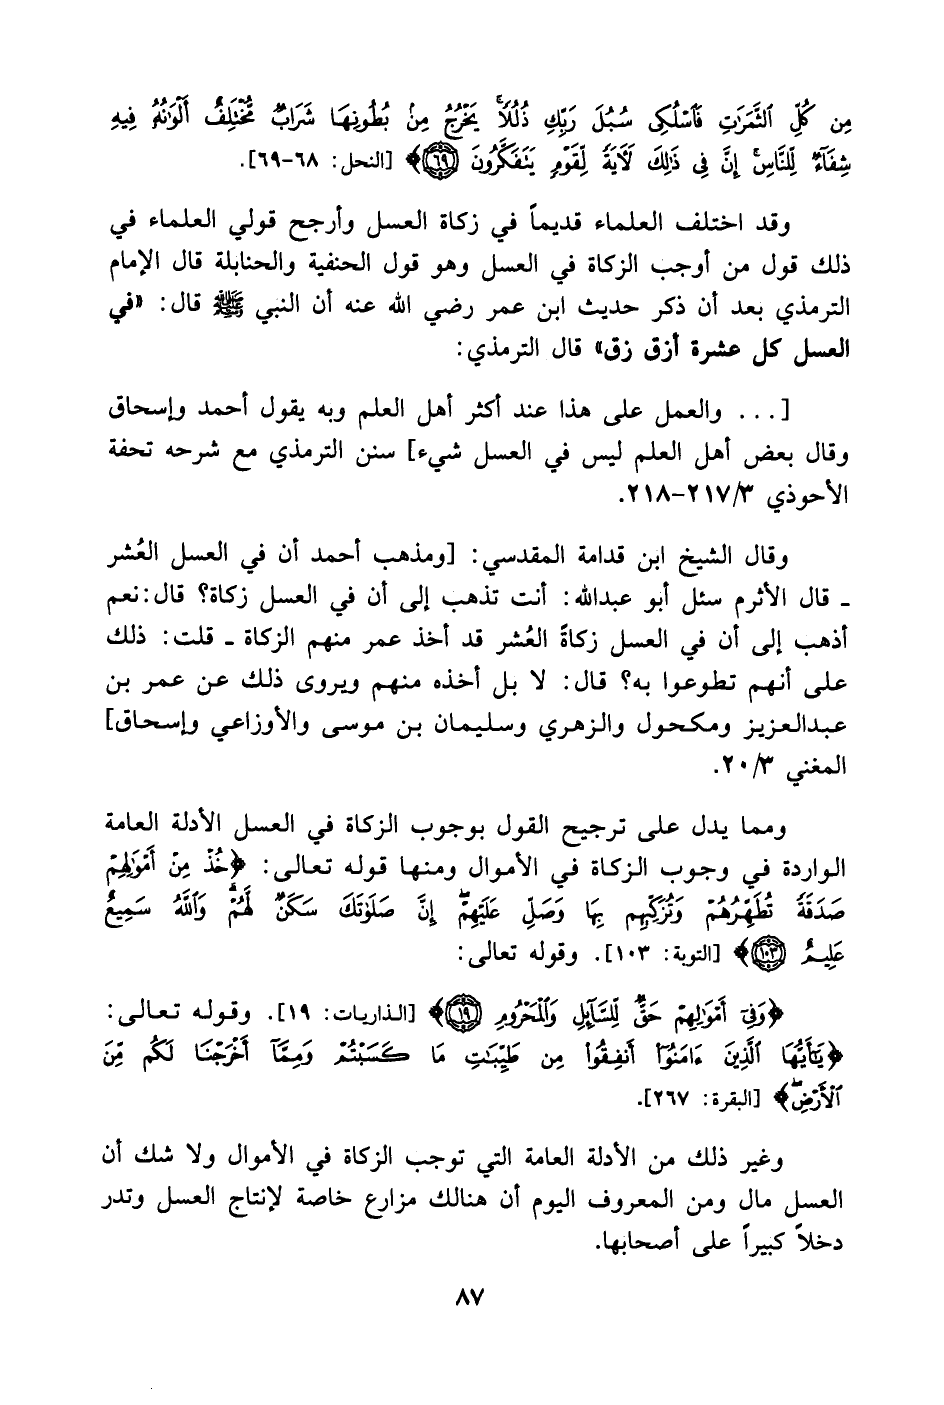 مِن كُلِّ ٱلثَّمَرَٰتِ فَٱسْلُكِى سُبُلَ رَبِّكِ ذُلُلًا ۚ يَخْرُجُ مِنۢ بُطُونِهَا شَرَابٌ مُّخْتَلِفٌ أَلْوَٰنُهُۥ فِيهِ
شِفَآءٌ لِّلنَّاسِ ۗ إِنَّ فِى ذَٰلِكَ لَـَٔايَةً لِّقَوْمٍ يَتَفَكَّرُونَ ۝٦٩﴾ [النحل: ٦٨-٦٩].
وقد اختلف العلماء قديماً في زكاة العسل وأرجح قولي العلماء في
ذلك قول من أوجب الزكاة في العسل وهو قول الحنفية والحنابلة قال الإمام
الترمذي بعد أن ذكر حديث ابن عمر رضي الله عنه أن النبي ﷺ قال: «في
العسل كل عشرة أزق زق» قال الترمذي:
[... والعمل على هذا عند أكثر أهل العلم وبه يقول أحمد وإسحاق
وقال بعض أهل العلم ليس في العسل شيء] سنن الترمذي مع شرحه تحفة
الأحوذي ٢١٧/٣-٢١٨.
وقال الشيخ ابن قدامة المقدسي: [ومذهب أحمد أن في العسل العُشر
ـ قال الأثرم سئل أبو عبدالله: أنت تذهب إلى أن في العسل زكاة؟ قال:نعم
أذهب إلى أن في العسل زكاةً العُشر قد أخذ عمر منهم الزكاة ـ قلت: ذلك
على أنهم تطوعوا به؟ قال: لا بل أخذه منهم ويروى ذلك عن عمر بن
عبدالعزيز ومكحول والزهري وسليمان بن موسى والأوزاعي وإسحاق]
المغني ٢٠/٣.
ومما يدل على ترجيح القول بوجوب الزكاة في العسل الأدلة العامة
الواردة في وجوب الزكاة في الأموال ومنها قوله تعالى: ﴿خُذْ مِنْ أَمْوَٰلِهِمْ
صَدَقَةً تُطَهِّرُهُمْ وَتُزَكِّيهِم بِهَا وَصَلِّ عَلَيْهِمْ ۖ إِنَّ صَلَوٰتَكَ سَكَنٌ لَّهُمْ ۗ وَٱللَّهُ سَمِيعٌ
عَلِيمٌ ۝١٠٣﴾ [التوبة: ١٠٣]. وقوله تعالى:
﴿وَفِىٓ أَمْوَٰلِهِمْ حَقٌّ لِّلسَّآئِلِ وَٱلْمَحْرُومِ ۝١٩﴾ [الذاريات: ١٩]. وقوله تعالى:
﴿يَٰٓأَيُّهَا ٱلَّذِينَ ءَامَنُوٓا۟ أَنفِقُوا۟ مِن طَيِّبَٰتِ مَا كَسَبْتُمْ وَمِمَّآ أَخْرَجْنَا لَكُم مِّنَ
ٱلْأَرْضِ ۖ﴾ [البقرة: ٢٦٧].
وغير ذلك من الأدلة العامة التي توجب الزكاة في الأموال ولا شك أن
العسل مال ومن المعروف اليوم أن هنالك مزارع خاصة لإنتاج العسل وتدر
دخلاً كبيراً على أصحابها.
٨٧